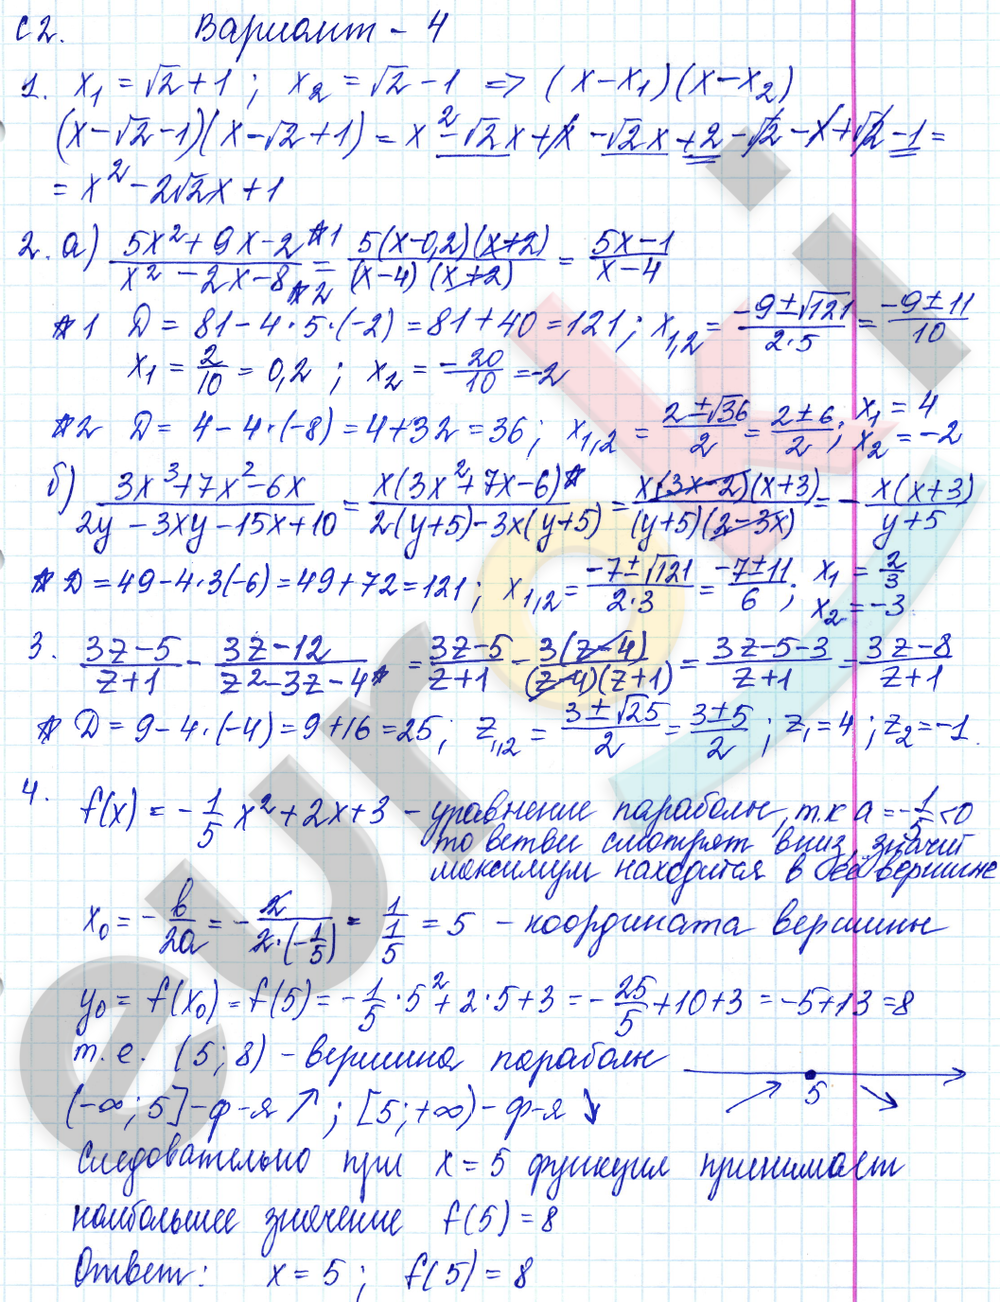 С2. Вариант - 4
1. x₁ = √2 + 1 ; x₂ = √2 - 1 => (x - x₁)(x - x₂)
(x - √2 - 1)(x - √2 + 1) = x² - √2x + x - √2x + 2 - √2 - x + √2 - 1 =
= x² - 2√2x + 1
2. а) (5x² + 9x - 2 *1)/(x² - 2x - 8 *2) = (5(x - 0,2)(x + 2))/((x - 4)(x + 2)) = (5x - 1)/(x - 4)
*1 D = 81 - 4 · 5 · (-2) = 81 + 40 = 121 ; x₁,₂ = (-9 ± √121)/(2 · 5) = (-9 ± 11)/10
x₁ = 2/10 = 0,2 ; x₂ = -20/10 = -2
*2 D = 4 - 4 · (-8) = 4 + 32 = 36 ; x₁,₂ = (2 ± √36)/2 = (2 ± 6)/2 ; x₁ = 4 x₂ = -2
б) (3x³ + 7x² - 6x)/(2y - 3xy - 15x + 10) = (x(3x² + 7x - 6)*)/(2(y + 5) - 3x(y + 5)) = (x(3x - 2)(x + 3))/((y + 5)(2 - 3x)) = - (x(x + 3))/(y + 5)
* D = 49 - 4 · 3(-6) = 49 + 72 = 121 ; x₁,₂ = (-7 ± √121)/(2 · 3) = (-7 ± 11)/6 ; x₁ = 2/3 x₂ = -3
3. (3z - 5)/(z + 1) - (3z - 12)/(z² - 3z - 4*) = (3z - 5)/(z + 1) - (3(z - 4))/((z - 4)(z + 1)) = (3z - 5 - 3)/(z + 1) = (3z - 8)/(z + 1)
* D = 9 - 4 · (-4) = 9 + 16 = 25 ; z₁,₂ = (3 ± √25)/2 = (3 ± 5)/2 ; z₁ = 4 ; z₂ = -1.
4. f(x) = - 1/5 x² + 2x + 3 - уравнение параболы, т.к а = -1/5 < 0
то ветви смотрят вниз, значит
максимум находится в её вершине
x₀ = - в/2a = - 2/(2 · (-1/5)) = 1/(1/5) = 5 - координата вершины
y₀ = f(x₀) = f(5) = - 1/5 · 5² + 2 · 5 + 3 = - 25/5 + 10 + 3 = -5 + 13 = 8
т.е. (5 ; 8) - вершина параболы
(-∞ ; 5] - ф-я ↗ ; [5 ; +∞) - ф-я ↘
5
Следовательно при x = 5 функция принимает
наибольшее значение f(5) = 8
Ответ: x = 5 ; f(5) = 8
euroki